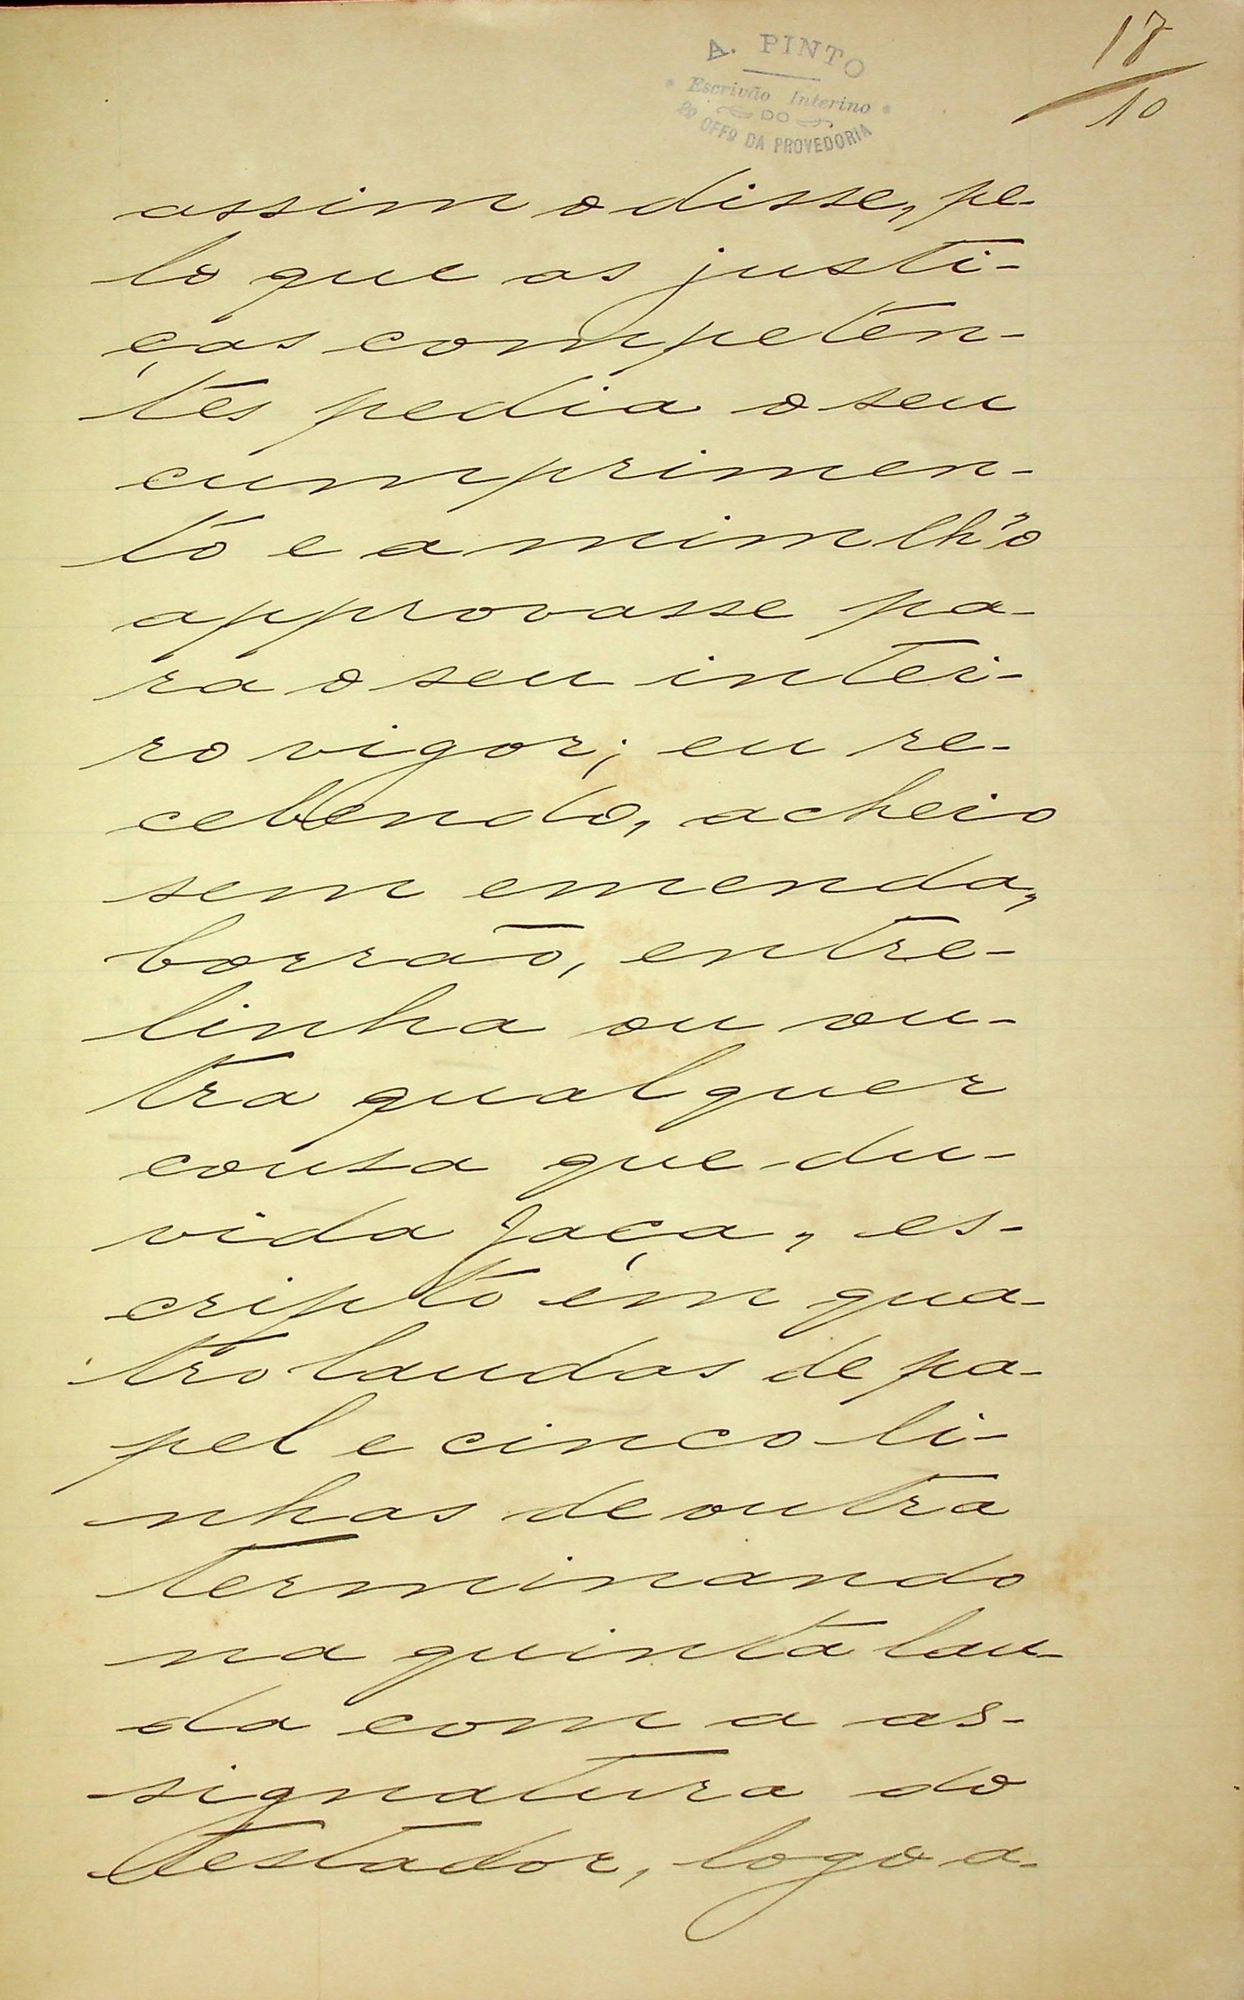 A. PINTO
Escrivão Interino
DO
2º OFFº DA PROVEDORIA
17
10
assim o disse, pe-
lo que as justi-
ças competen-
tes pedia o seu
cumprimen-
to e a mim lh'o
approvasse pa-
ra o seu intei-
ro vigor; eu re-
cebendo, achei o
sem emenda,
borrão, entre-
linha ou ou-
tra qualquer
cousa que du-
vida faça, es-
cripto em qua-
tro laudas de pa-
pel e cinco li-
nhas de outra
terminando
na quinta lau-
da com a as-
signatura do
testador, logo a-